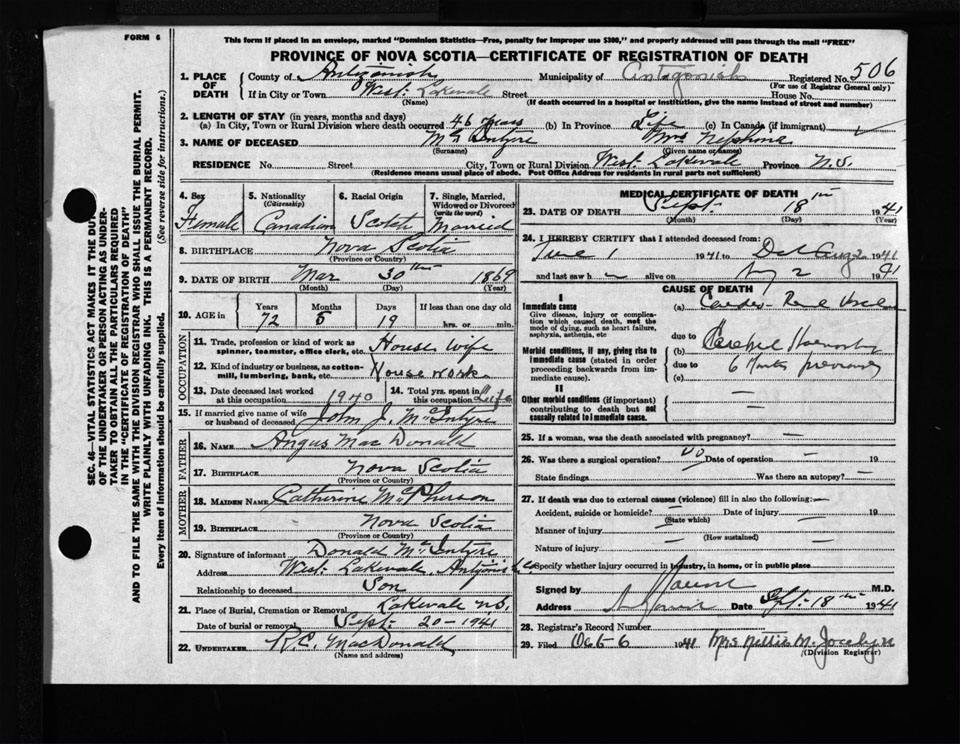 FORM 6
This form if placed in an envelope, marked "Dominion Statistics—Free, penalty for improper use $300," and properly addressed will pass through the mail "FREE"
PROVINCE OF NOVA SCOTIA—CERTIFICATE OF REGISTRATION OF DEATH
1. PLACE OF DEATH
County of Antigonish Municipality of Antagonish Registered No. 506
(For use of Registrar General only)
If in City or Town West Lakevale Street House No.
(Name) (If death occurred in a hospital or institution, give the name instead of street and number)
2. LENGTH OF STAY (in years, months and days)
(a) In City, Town or Rural Division where death occurred 46 years (b) In Province Life (c) In Canada (if immigrant)
3. NAME OF DECEASED McIntyre Mrs
(Surname) (Given name or names)
RESIDENCE No. Street City, Town or Rural Division West Lakevale Province N.S.
(Residence means usual place of abode. Post Office Address for residents in rural parts not sufficient)
4. Sex Female
5. Nationality (Citizenship) Canadian
6. Racial Origin Scotch
7. Single, Married, Widowed or Divorced (write the word) Married
8. BIRTHPLACE Nova Scotia
(Province or Country)
9. DATE OF BIRTH Mar 30th 1869
(Month) (Day) (Year)
10. AGE in Years Months Days If less than one day old
72 5 19 hrs. or min.
OCCUPATION
11. Trade, profession or kind of work as spinner, teamster, office clerk, etc. House Wife
12. Kind of industry or business, as cotton-mill, lumbering, bank, etc. House work
13. Date deceased last worked at this occupation 1940
14. Total yrs. spent in this occupation
15. If married give name of wife or husband of deceased John J. McIntyre
FATHER
16. NAME Angus MacDonald
17. BIRTHPLACE Nova Scotia
(Province or Country)
MOTHER
18. MAIDEN NAME Catherine McPherson
19. BIRTHPLACE Nova Scotia
(Province or Country)
20. Signature of informant Donald McIntyre
Address West Lakevale, Antigonish Co
Relationship to deceased Son
21. Place of Burial, Cremation or Removal Lakevale N.S.
Date of burial or removal Sept 20-1941
22. UNDERTAKER R.C. MacDonald
(Name and address)
MEDICAL CERTIFICATE OF DEATH
23. DATE OF DEATH Sept. 18th 1941
(Month) (Day) (Year)
24. I HEREBY CERTIFY that I attended deceased from:
June 1 1941 to Aug 2 1941
and last saw h alive on Aug 2 1941
CAUSE OF DEATH
I
Immediate cause
Give disease, injury or complication which caused death, not the mode of dying, such as heart failure, asphyxia, asthenia, etc
(a) Cardio-Renal
due to
Morbid conditions, if any, giving rise to immediate cause (stated in order proceeding backwards from immediate cause).
(b) Cerebral
due to
(c) 6 months previously
II
Other morbid conditions (if important) contributing to death but not causally related to immediate cause.
25. If a woman, was the death associated with pregnancy? —
26. Was there a surgical operation? No Date of operation —
State findings Was there an autopsy? —
27. If death was due to external causes (violence) fill in also the following:—
Accident, suicide or homicide? — Date of injury — 19
(State which)
Manner of injury —
(How sustained)
Nature of injury —
Specify whether injury occurred in industry, in home, or in public place
Signed by M.D.
Address Date Sept. 18th 1941
28. Registrar's Record Number
29. Filed Oct 6 1941 Mrs Nettie M. Jocelyn
(Division Registrar)
SEC. 46—VITAL STATISTICS ACT MAKES IT THE DUTY
OF THE UNDERTAKER OR PERSON ACTING AS UNDER-
TAKER TO OBTAIN ALL THE PARTICULARS REQUIRED
IN THE "CERTIFICATE OF REGISTRATION OF DEATH"
AND TO FILE THE SAME WITH THE DIVISION REGISTRAR WHO SHALL ISSUE THE BURIAL PERMIT.
WRITE PLAINLY WITH UNFADING INK. THIS IS A PERMANENT RECORD.
Every item of information should be carefully supplied. (See reverse side for instructions.)